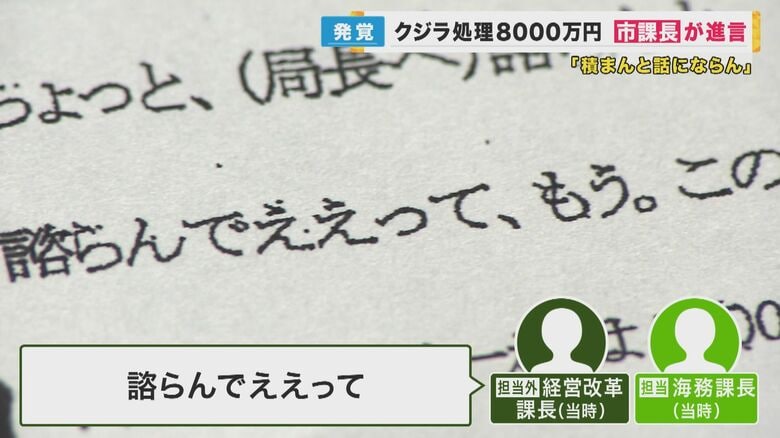 発覚 クジラ処理8000万円 市課長が進言
「積まんと話にならん」
ょっと、(局長へ)
諮らんでええって、もう。この
諮らんでええって
担当外 経営改革
課長(当時)
担当 海務課長
(当時)